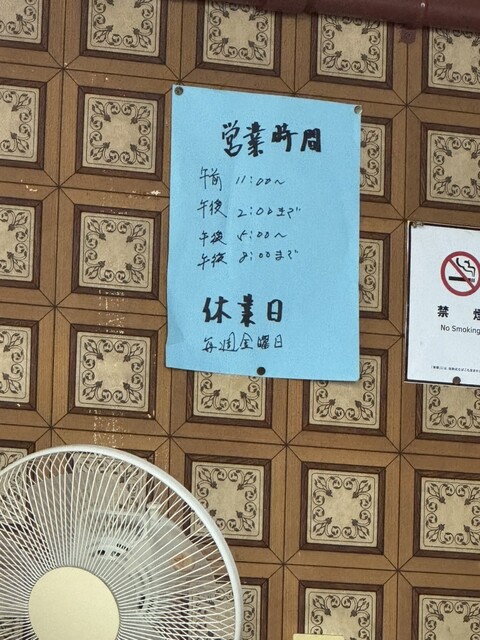 営業時間
午前 11:00〜
午後 2:00まで
午後 5:00〜
午後 8:00まで
休業日
毎週金曜日
禁煙
No Smoking